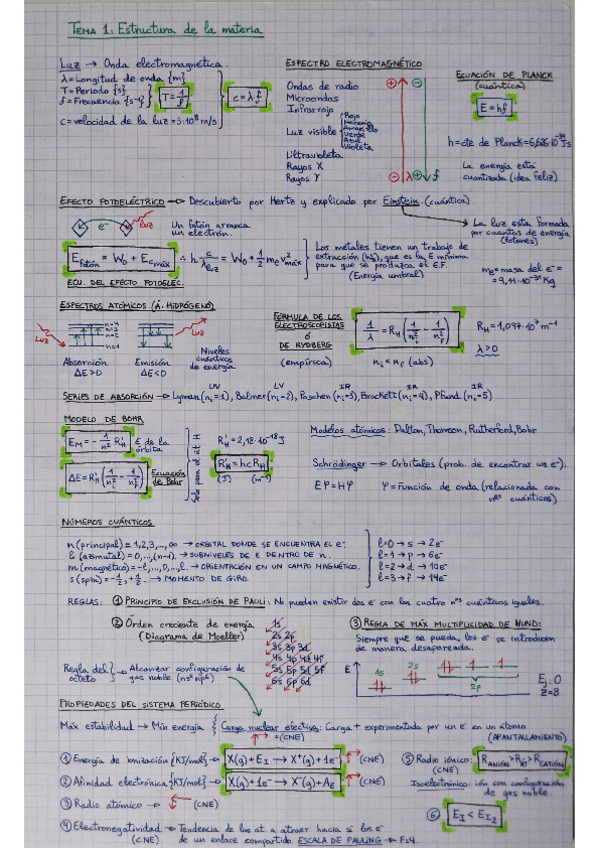 TEMA 1: Estructura de la materia
Luz → Onda electromagnética.
λ = Longitud de onda {m}
T = Periodo {s}
f = Frecuencia {s⁻¹}
T = 1/f
c = λ f
c = velocidad de la luz = 3·10⁸ m/s
ESPECTRO ELECTROMAGNÉTICO
Ondas de radio
Microondas
Infrarrojo
Luz visible
Rojo
Naranja
Amarillo
Verde
Azul
Violeta
Ultravioleta
Rayos X
Rayos γ
⊕ ⊖
⊖ λ ⊕ f
ECUACIÓN DE PLANCK
(cuántica)
E = hf
h = cte de Planck = 6,626·10⁻³⁴ J·s
La energía está
cuantizada (idea feliz)
EFECTO FOTOELÉCTRICO → Descubierto por Hertz y explicado por Einstein. (cuántica)
e⁻ luz
Un fotón arranca
un electrón.
La luz esta formada
por cuantos de energía
(fotones)
E fotón = W₀ + Ec máx ∴ h c/λ luz = W₀ + 1/2 me v² máx
ECU. DEL EFECTO FOTOELÉC.
Los metales tienen un trabajo de
extracción (W₀), que es la E mínima
para que se produzca el E.F.
(Energía umbral)
me = masa del e⁻ =
= 9,11·10⁻³¹ Kg
ESPECTROS ATÓMICOS (Á. HIDRÓGENO)
Luz
n=1
Luz
Absorción
ΔE>0
Emisión
ΔE<0
Niveles
cuánticos
de energía
FÓRMULA DE LOS
ELECTROSCOPISTAS
ó
DE RYDBERG
(empírica)
1/λ = R_H (1/n²i − 1/n²f)
ni < nf (abs)
R_H = 1,097·10⁷ m⁻¹
λ>0
SERIES DE ABSORCIÓN → Lyman (ni=1), Balmer (ni=2), Paschen (ni=3), Brackett (ni=4), Pfund (ni=5)
UV LV IR IR IR
MODELO DE BOHR
E_M = − 1/n² R'_H
E de la
órbita
ΔE = R'_H (1/n²i − 1/n²f)
Ecuación
de Bohr
Sólo para el át. H
R'_H = 2,18·10⁻¹⁸ J
R'_H = hcR_H
(J) (m⁻¹)
Modelos atómicos: Dalton, Thomson, Rutherford, Bohr
Schrödinger → Orbitales (prob. de encontrar un e⁻).
Eφ = Hφ φ = Función de onda (relacionada con
nºs cuánticos)
NÚMEROS CUÁNTICOS
n (principal) = 1, 2, 3, ..., ∞ → ORBITAL DONDE SE ENCUENTRA EL e⁻
l (azimutal) = 0, ..., (n-1). → SUBNIVELES DE E DENTRO DE n.
m (magnético) = -l, ..., 0, ..., l. → ORIENTACIÓN EN UN CAMPO MAGNÉTICO.
s (spin) = -1/2, +1/2. → MOMENTO DE GIRO.
l=0 → s → 2e⁻
l=1 → p → 6e⁻
l=2 → d → 10e⁻
l=3 → f → 14e⁻
REGLAS: ① PRINCIPIO DE EXCLUSIÓN DE PAULI: No pueden existir dos e⁻ con los cuatro nºs cuánticos iguales.
② Órden creciente de energía
(Diagrama de Moeller)
1s
2s 2p
3s 3p 3d
4s 4p 4d 4f
5s 5p 5d 5f
6s 6p 6d
③ REGLA DE MÁX MULTIPLICIDAD DE HUND:
Siempre que se pueda, los e⁻ se introducen
de manera desapareada.
E
1s
2s
2p
Ej: O
Z=8
Regla del
octeto
Alcanzar configuración de
gas noble (ns²np⁶)
PROPIEDADES DEL SISTEMA PERIÓDICO
Máx estabilidad → Mín energía
Carga nuclear efectiva: Carga + experimentada por un e⁻ en un átomo
= (CNE)
(APANTALLAMIENTO)
① Energía de ionización {KJ/mol} → X(g) + E_I → X⁺(g) + 1e⁻ (CNE)
② Afinidad electrónica {KJ/mol} → X(g) + 1e⁻ → X⁻(g) + A_E (CNE)
③ Radio atómico → (CNE)
④ Electronegatividad → Tendencia de los át. a atraer hacia sí los e⁻
(CNE) de un enlace compartido. ESCALA DE PAULING → F=4.
⑤ Radio iónico:
(CNE)
R ANIÓN > R AT > R CATIÓN
Isoelectrónico: ión con configuración
de gas noble.
⑥ E_I < E_I₂